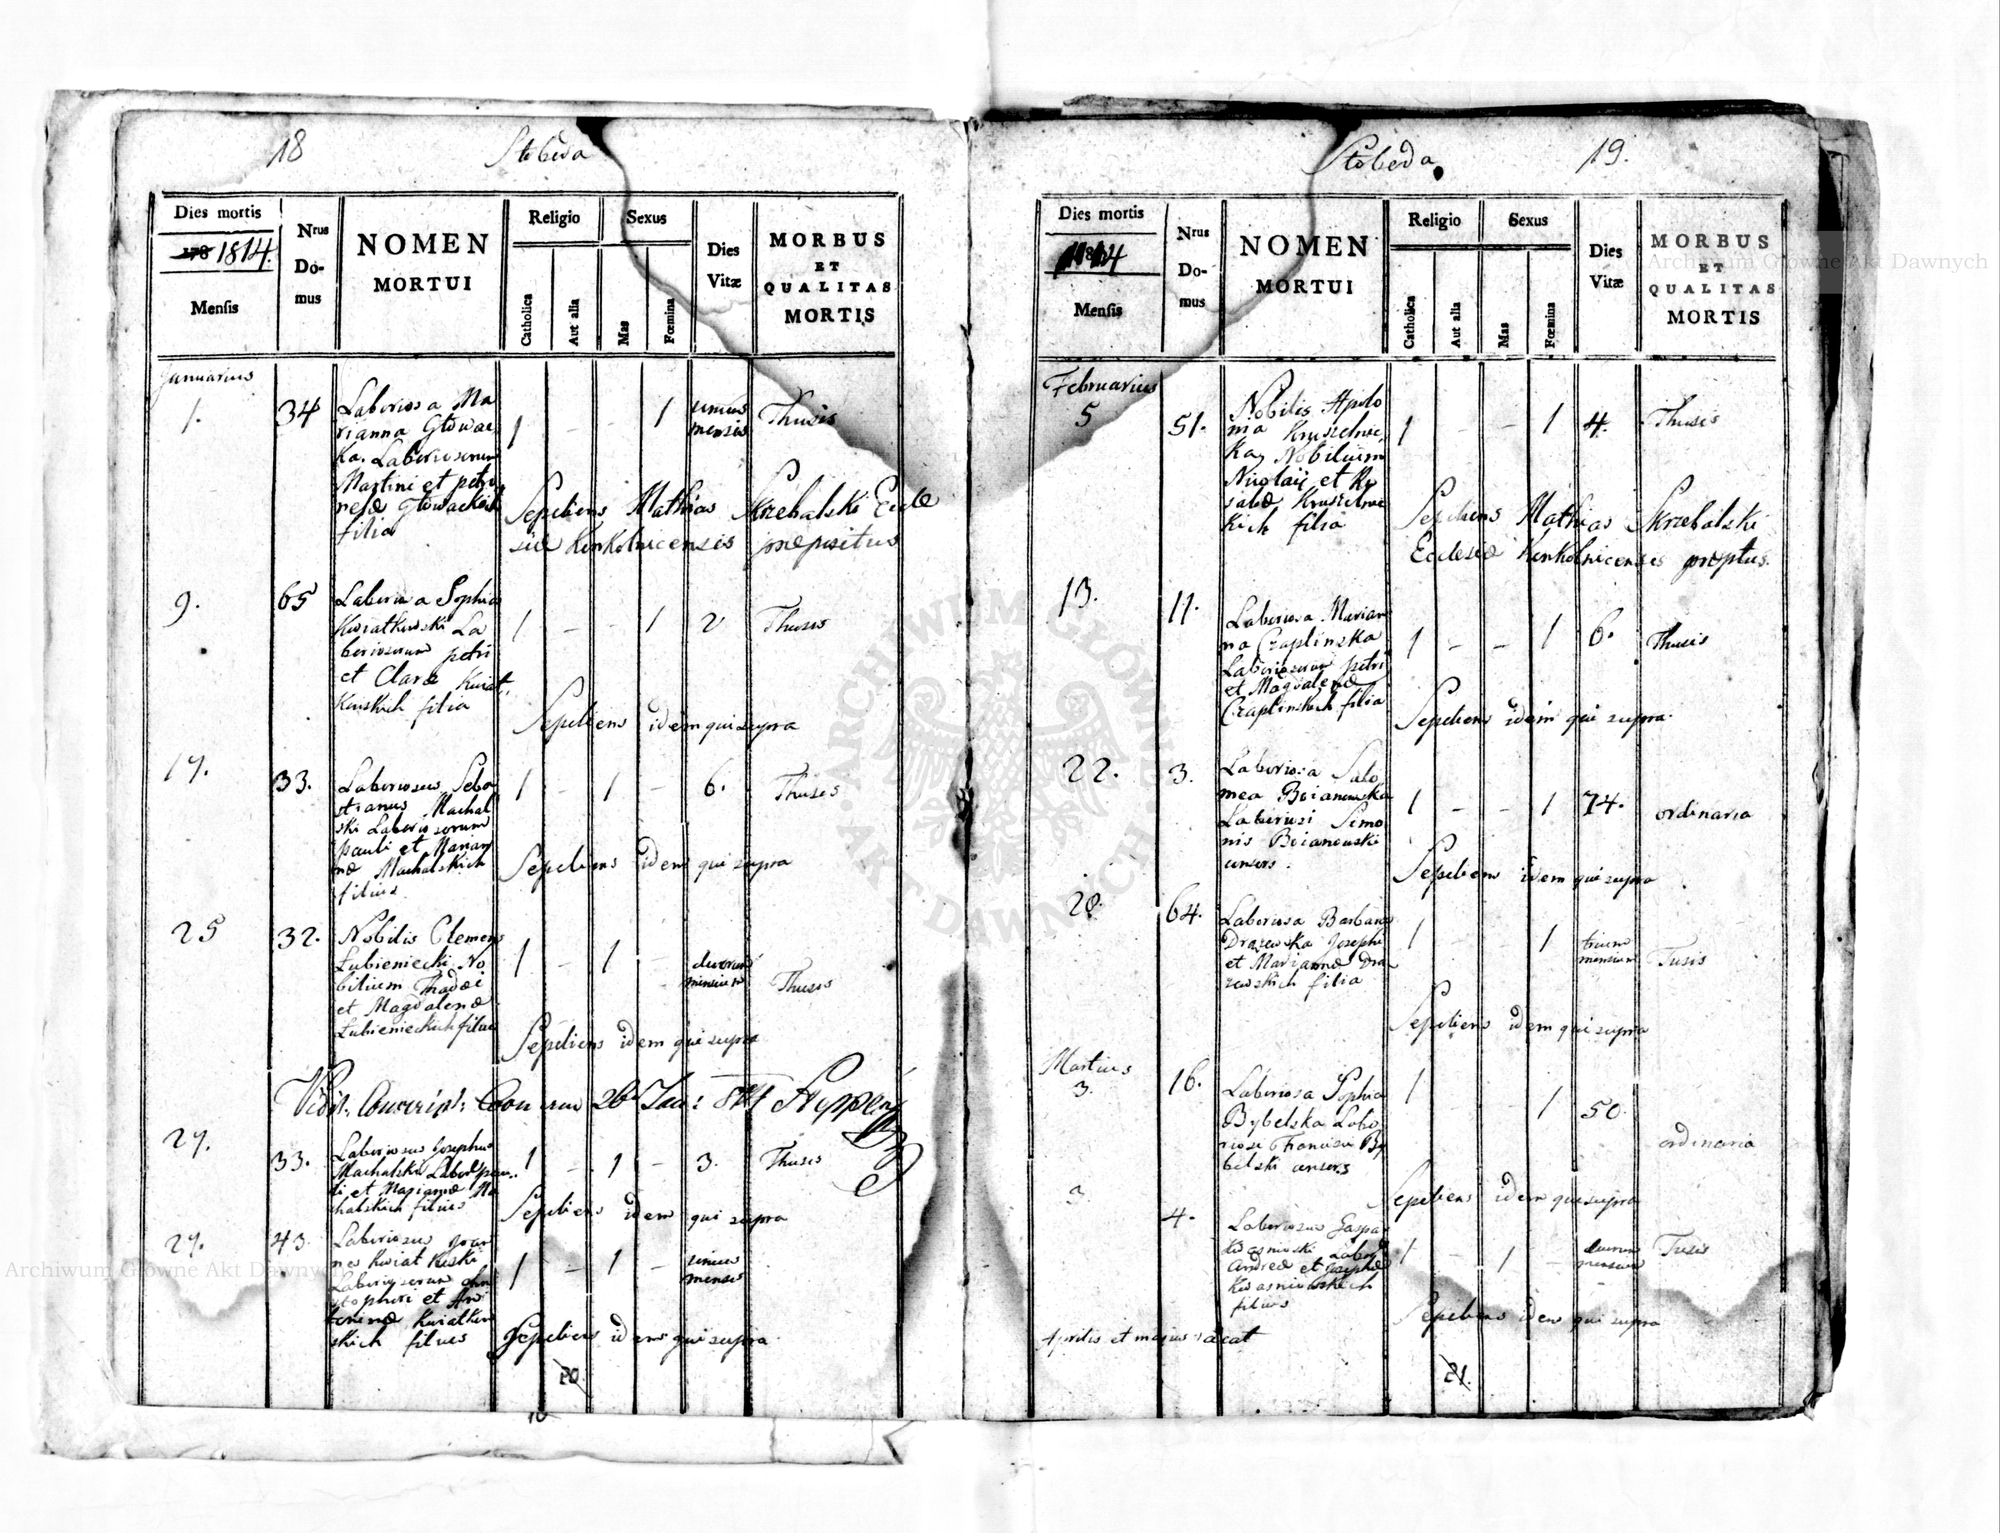 18 Słoboda
Dies mortis
178 1814.
Mensis
Nrus
Do-
mus
NOMEN
MORTUI
Religio
Catholica
Aut alia
Sexus
Mas
Fœmina
Dies
Vitæ
MORBUS
ET
QUALITAS
MORTIS
Januarius
1. 34
Laboriosa Ma
rianna Głowac
ka. Laboriosorum
Martini et petro
nelæ Głowackich
filia
1 – – 1 unius
mensis
Thusis
Sepeliens Mathias Skrzebalski Eccle
siæ Konkolnicensis præpositus
9. 65
Laboriosa Sophia
Kwiatkowski La
boriosorum petri
et Claræ Kwiat
kowskich filia
1 – – 1 2 Thusis
Sepeliens idem qui supra
17. 33.
Laboriosus Seba
stianus Machal
ski Laboriosorum
pauli et Marian
næ Machalskich
filius
1 – 1 – 6. Thusis
Sepeliens idem qui supra
25 32.
Nobilis Clemens
Łubieniecki No
bilium Thadæi
et Magdalenæ
Łubienieckich filius
1 – 1 – duorum
mensium
Thusis
Sepeliens idem qui supra
27. 33.
Laboriosus Josephus
Machalski Labor: pau
li et Mariannæ Ma
chalskich filius
1 – 1 – 3. Thusis
Sepeliens idem qui supra
27. 43
Laboriosus Joan
nes Kwiatkoski
Laboriosorum Chri
stophori et An
toninæ Kwiatkow
skich filius
1 – 1 unius
mensis
Sepeliens idem qui supra
20.
10
Słoboda 19.
Dies mortis
1814
Mensis
Nrus
Do-
mus
NOMEN
MORTUI
Religio
Catholica
Aut alia
Sexus
Mas
Fœmina
Dies
Vitæ
MORBUS
ET
QUALITAS
MORTIS
Februarius
5 51.
Nobilis Apolo
nia Kruszelnic
ka, Nobilium
Nicolaii et Ro
saliæ Kruszelnic
kich filia
1 – – 1 4. Thusis
Sepeliens Mathias Skrzebalski
Ecclesiæ Konkolnicensis præptus.
13. 11.
Laboriosa Marian
na Czaplinska
Laboriosorum petri
et Magdalenæ
Czaplinskich filia
1 – – 1 6. Thusis
Sepeliens idem qui supra.
22. 3.
Laboriosa Salo
mea Boianowska
Laboriosi Simo
nis Boianowski
uxors.
1 – – 1 74. ordinaria
Sepeliens idem qui supra
28. 64.
Laboriosa Barbara
Drazewska Josephi
et Mariannæ Dra
zewskich filia
1 – – 1 trium
mensium
Tusis
Sepeliens idem qui supra
Martius
3. 16.
Laboriosa Sophia
Bybelska Labo
riosi Francisci By
belski uxors
1 1 50. ordinaria
Sepeliens idem qui supra
3. 4.
Laboriosus Gaspar
Kwasnioski Labor:
Andreæ et Josephæ
Kwasniowskich
filius
1 – 1 – duorum
mensium
Tusis
Sepeliens idem qui supra
Aprilis et majus vacat
21.
ARCHIWUM GŁÓWNE AKT DAWNYCH
Archiwum Główne Akt Dawnych
Archiwum Główne Akt Dawnych